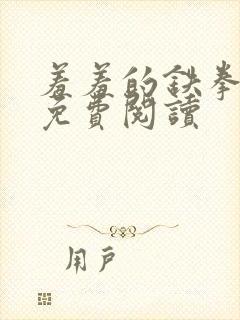 羞羞的鉄拳
免費閱讀
用戶